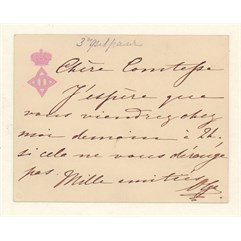 Chère Comtesse
J'espère que
vous viendrez chez
moi demain à 2h,
si cela ne vous dérange
pas Mille amitiés
Olga